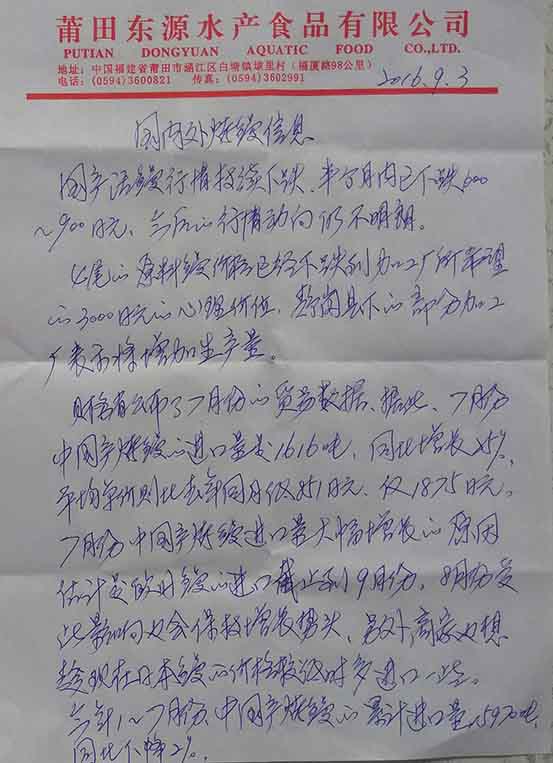 莆田东源水产食品有限公司
PUTIAN DONGYUAN AQUATIC FOOD CO.,LTD.
地址：中国福建省莆田市涵江区白塘镇埭里村（福厦路98公里）
电话：(0594)3600821 传真：(0594)3602991
2016.9.3
国内外烤鳗信息
国产活鳗行情持续下跌，半个月内已下跌600
~900日元，今后的行情动向仍不明朗。
尾的原料鳗价格已经下跌到加工厂所希望
的3000日元的心理价位，静岡县下的部分加工
厂表示将增加生产量。
财务省公布了7月份的贸易数据，据此，7月份
中国产烤鳗的进口量是1616吨，同比增长25%，
平均单价则比去年同月低851日元，仅1875日元。
7月份中国产烤鳗进口量大幅增长的原因
估计是的日鳗的进口截止到9月份，8月份受
此影响也会保持增长势头，另外，商家也想
趁现在日本鳗的价格较低时多进口一些。
今年1~7月份，中国产烤鳗的累计进口量5970吨，
同比下降2%。